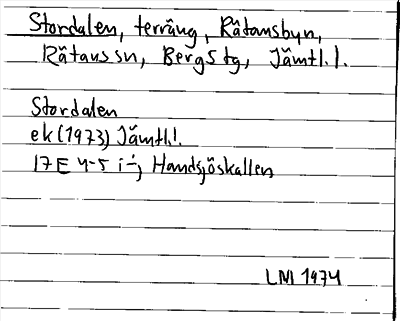 Stordalen, terräng, Rätansbyn,
Rätans sn, Bergs tg, Jämtl. l.
Stordalen
ek (1973) Jämtl.l.
17E 4-5 i-j Handsjöskallen
LM 1974